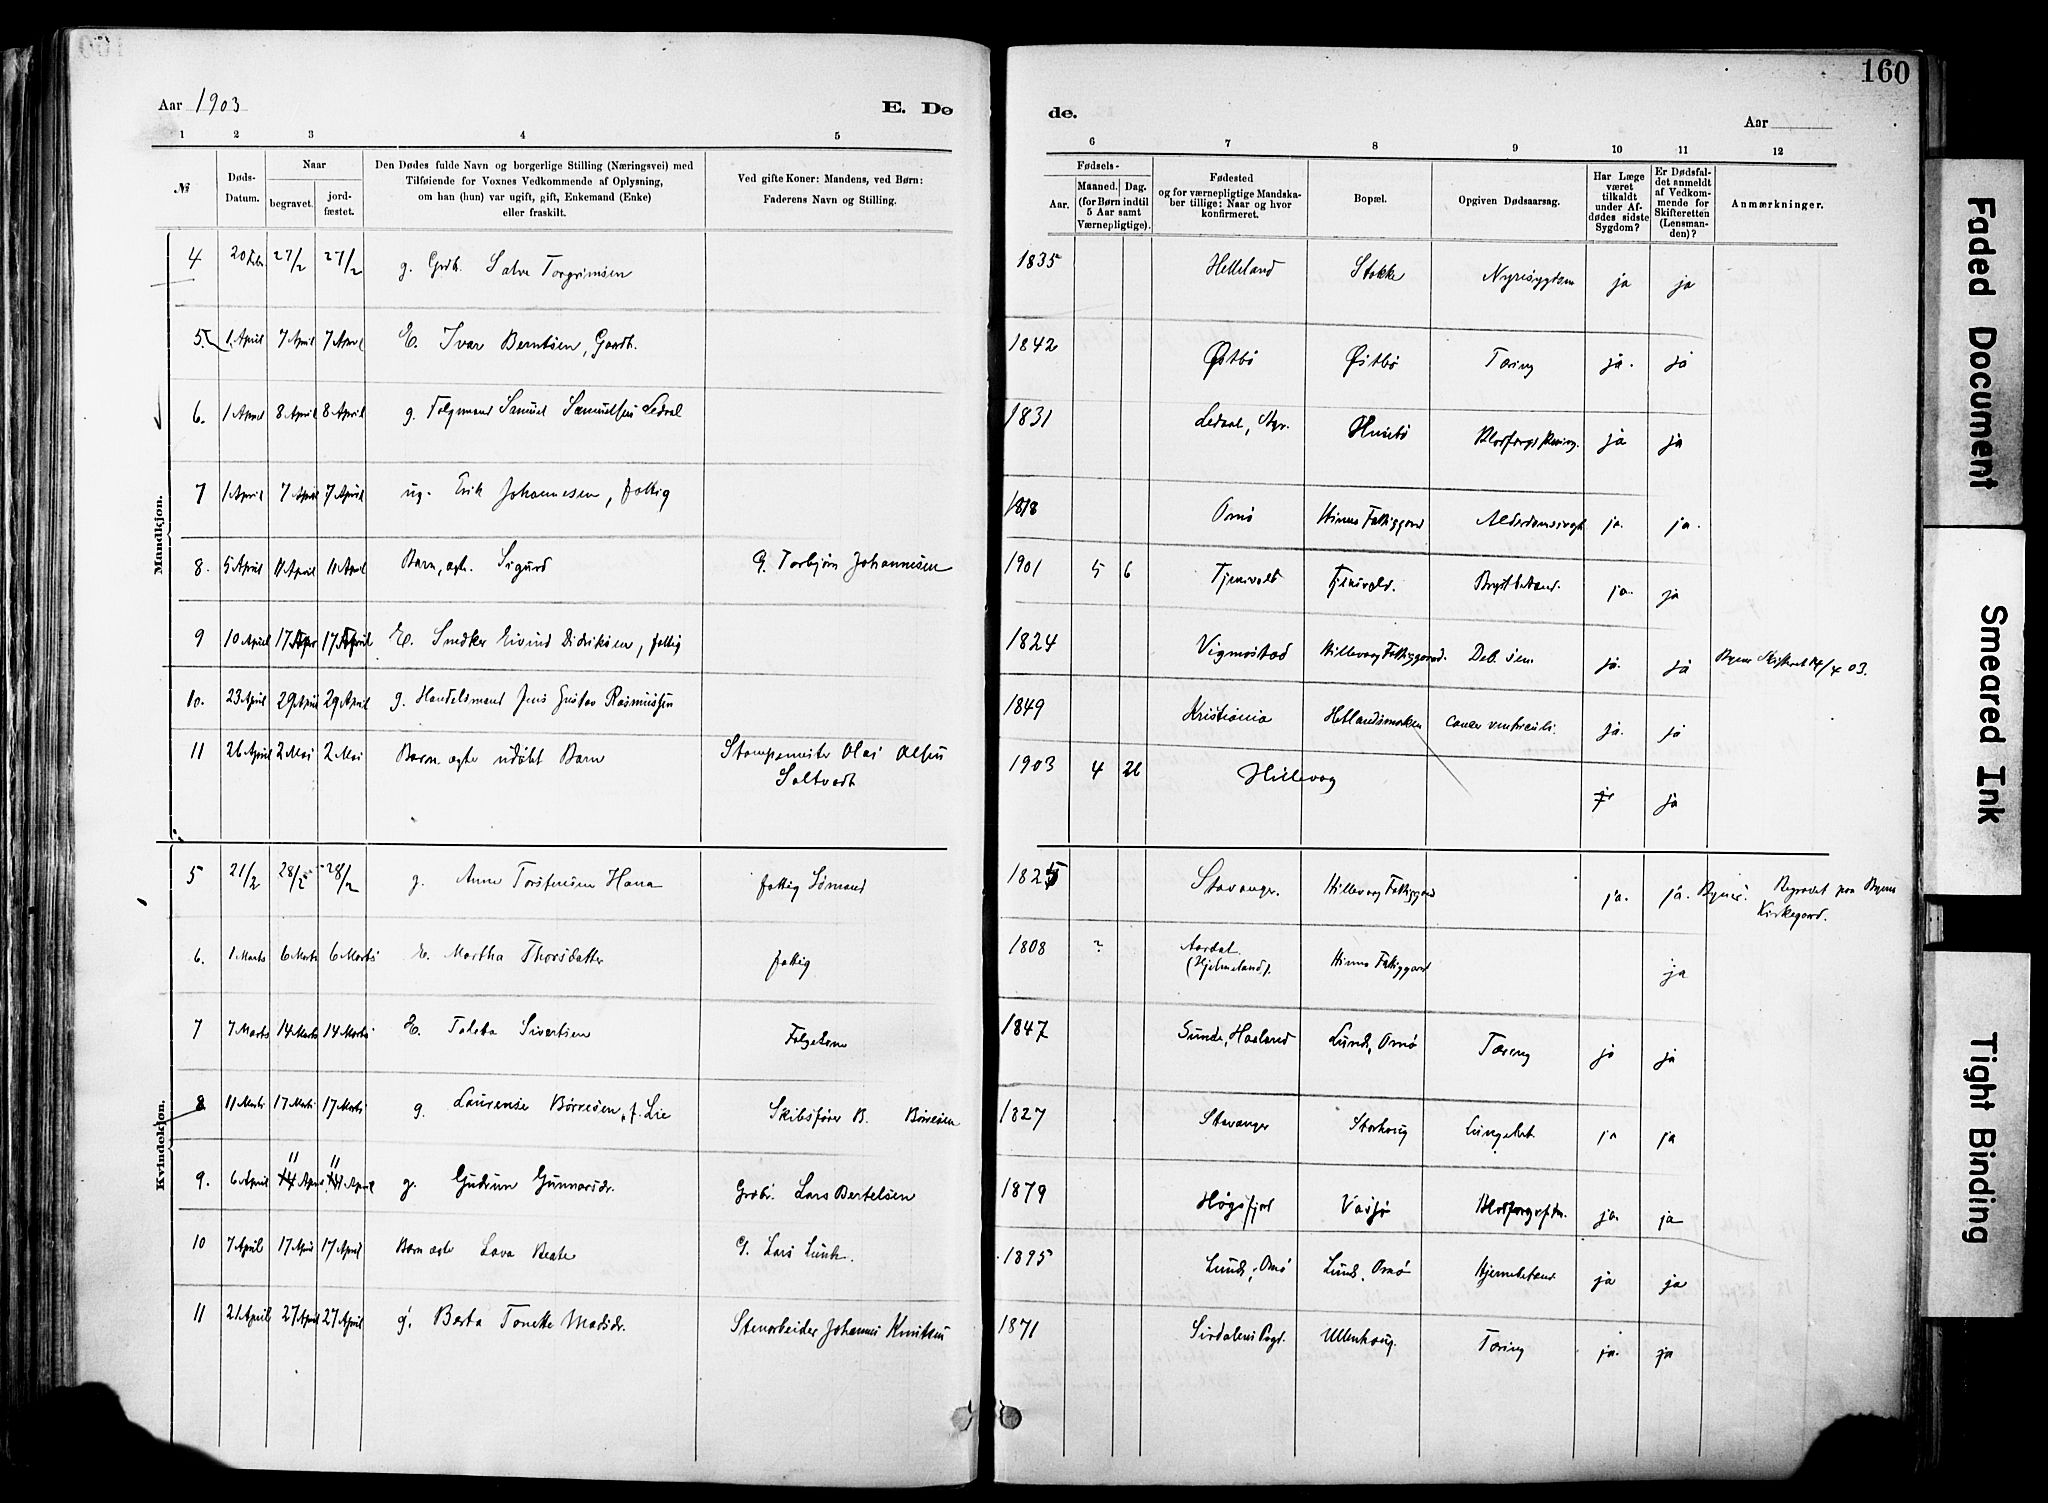 160
Aar 1903
E. Dø
de.
Aar
1 2 3 4 5 6 7 8 9 10 11 12
№
Døds-Datum.
Naar
begravet.
jord-fæstet.
Den Dødes fulde Navn og borgerlige Stilling (Næringsvei) med
Tilføiende for Voxnes Vedkommende af Oplysning,
om han (hun) var ugift, gift, Enkemand (Enke)
eller fraskilt.
Ved gifte Koner: Mandens, ved Børn:
Faderens Navn og Stilling.
Fødsels-
Aar.
Maaned. Dag.
(for Børn indtil
5 Aar samt
Værnepligtige).
Fødested
og for værnepligtige Mandska-
ber tillige: Naar og hvor
konfirmeret.
Bopæl.
Opgiven Dødsaarsag.
Har Læge
været
tilkaldt
under Af-
dødes sidste
Sygdom?
Er Dødsfal-
det anmeldt
af Vedkom-
mende for
Skifteretten
(Lensman-
den)?
Anmærkninger.
Mandkjøn.
4 20 Febr 27/2 27/2 g. Grdb. Salve Torgrimsen 1835 Helleland Stokke Nyresygdom ja ja
5. 1. April 7 April 7 April E. Ivar Berntsen, Gaardb. 1842 Østbø Østbø Tæring ja. ja
6. 1 April 8 April 8 April g. Folgemand Samuel Samuelsen Ledaal 1831 Ledaal, Huse­bø ja ja
7 1 April 7 April 7 April ug. Erik Johannesen, fattig 1818 Omø Hinna Fattiggaard Alderdomssvagh ja. ja.
8. 5 April 11 April 11 April Barn, ægte. Sigurd G. Torbjørn Johannesen 1901 5 6 Tjensvold Tjensvold. Brystbetænd. ja. ja
9 10 April 17 Apr 17 April E. Eivind Didriksen, fattig 1824 Vigmostad Hillevaag Fattiggaard. Deb. sen. ja. ja Byens Skifteret 14/4 03.
10. 23 April 29 April 29 April g. Handelsmand Jens Gustav Rasmussen 1849 Kristiania Hetlandsmarken cancer ventriculi. ja. ja
11 26 April 2 Mai 2 Mai Barn ægte udøbt Barn Stampemester Olai Olsen
Saltvedt 1903 4 26 Hillevaag ja
Kvindekjøn.
5 21/2 28/2 28/2 g. Anne Torstensen Hana fattig Sømand 1825 Stavanger. Hillevaag Fattiggaard ja. ja. Byens. Begravet paa Byens
Kirkegaard.
6. 1 Marts 6 Marts 6 Marts E. Martha Thorsdatter fattig 1808 ? Aardal
(Hjelmeland). Hinna Fattiggaard ja
7 7 Marts 14 Marts 14 Marts E. Tabeta Sivertsen Folgekone 1847 Sunde, Haaland Lunde, Omø Tæring ja ja
8 11 Marts 17 Marts 17 Marts g. Laurense Børresen, f. Lie Skibsfører B. Børresen 1827 Stavanger Storhaug Lungebet ja ja
9. 6 April 11 14 April 11 14 April g. Gudrun Gunnarsdr. Grdbr. Lars Bertelsen 1879 Høgsfjord ja. ja
10 7 April 17 April 17 April Barn ægte Lava Beate G. Lars Lunde. 1895 Lunde, Omø Lunde, Omø Hjernebetænd ja ja
11 21 April 27 April 27 April g. Berta Tonette Madsdr. Stenarbeider Johannes Knutsen 1871 Sirdalens Prgd. Ullenhaug. Tæring ja. ja
Faded Document
Smeared Ink
Tight Binding